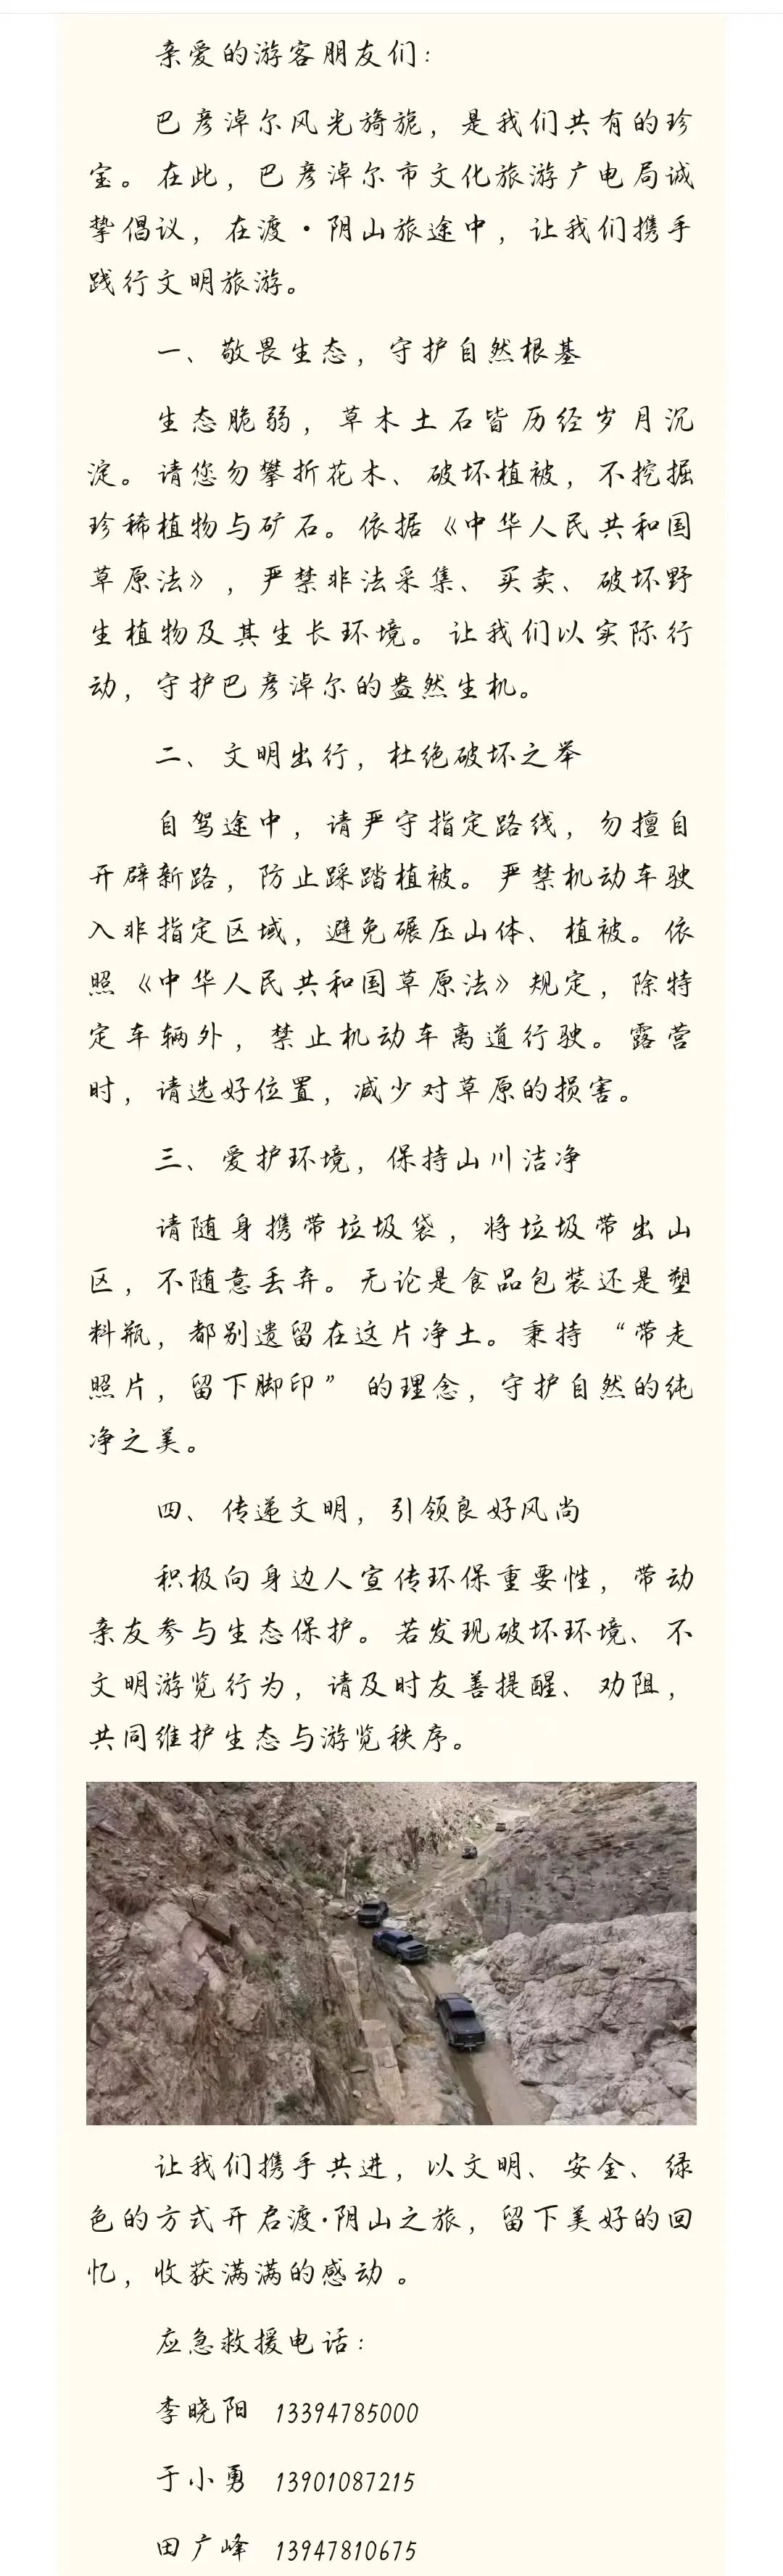 亲爱的游客朋友们：
巴彦淖尔风光旖旎，是我们共有的珍
宝。在此，巴彦淖尔市文化旅游广电局诚
挚倡议，在渡·阴山旅途中，让我们携手
践行文明旅游。
一、敬畏生态，守护自然根基
生态脆弱，草木土石皆历经岁月沉
淀。请您勿攀折花木、破坏植被，不挖掘
珍稀植物与矿石。依据《中华人民共和国
草原法》，严禁非法采集、买卖、破坏野
生植物及其生长环境。让我们以实际行
动，守护巴彦淖尔的盎然生机。
二、文明出行，杜绝破坏之举
自驾途中，请严守指定路线，勿擅自
开辟新路，防止踩踏植被。严禁机动车驶
入非指定区域，避免碾压山体、植被。依
照《中华人民共和国草原法》规定，除特
定车辆外，禁止机动车离道行驶。露营
时，请选好位置，减少对草原的损害。
三、爱护环境，保持山川洁净
请随身携带垃圾袋，将垃圾带出山
区，不随意丢弃。无论是食品包装还是塑
料瓶，都别遗留在这片净土。秉持“带走
照片，留下脚印”的理念，守护自然的纯
净之美。
四、传递文明，引领良好风尚
积极向身边人宣传环保重要性，带动
亲友参与生态保护。若发现破坏环境、不
文明游览行为，请及时友善提醒、劝阻，
共同维护生态与游览秩序。
让我们携手共进，以文明、安全、绿
色的方式开启渡·阴山之旅，留下美好的回
忆，收获满满的感动。
应急救援电话：
李晓阳 13394785000
于小勇 13901087215
田广峰 13947810675